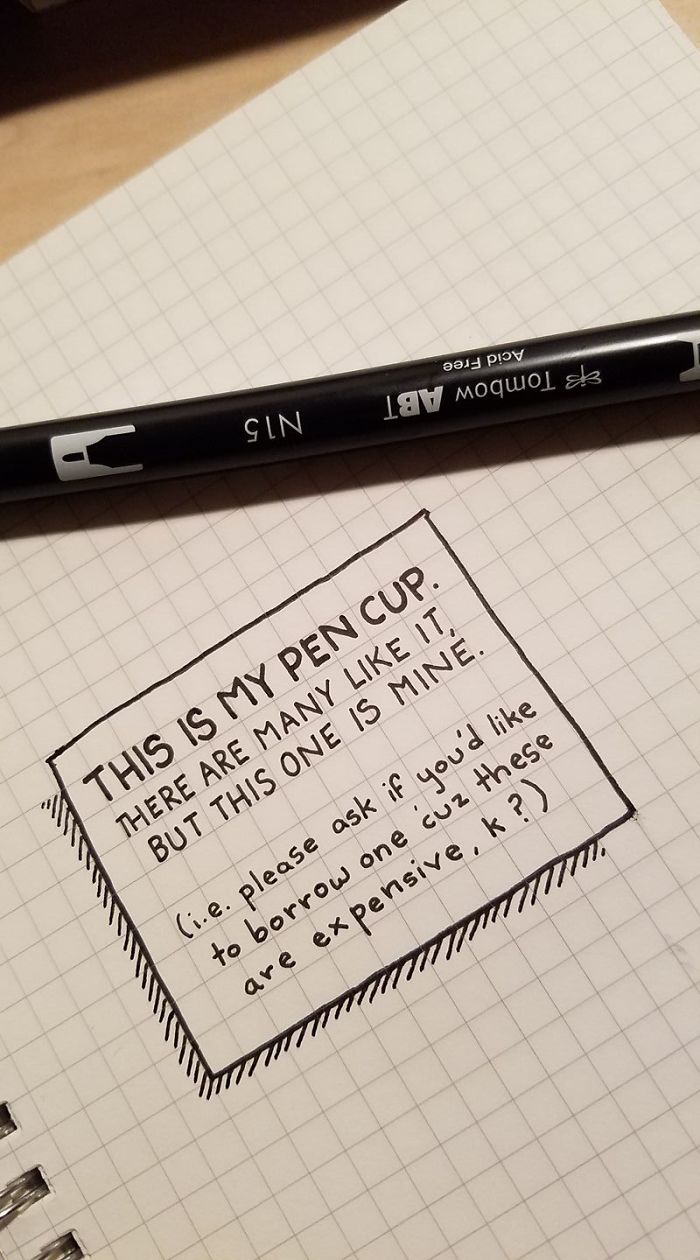 Acid Free
Tombow ABT
N15
THIS IS MY PEN CUP.
THERE ARE MANY LIKE IT,
BUT THIS ONE IS MINE.
(i.e. please ask if you'd like
to borrow one 'cuz these
are expensive, k?)